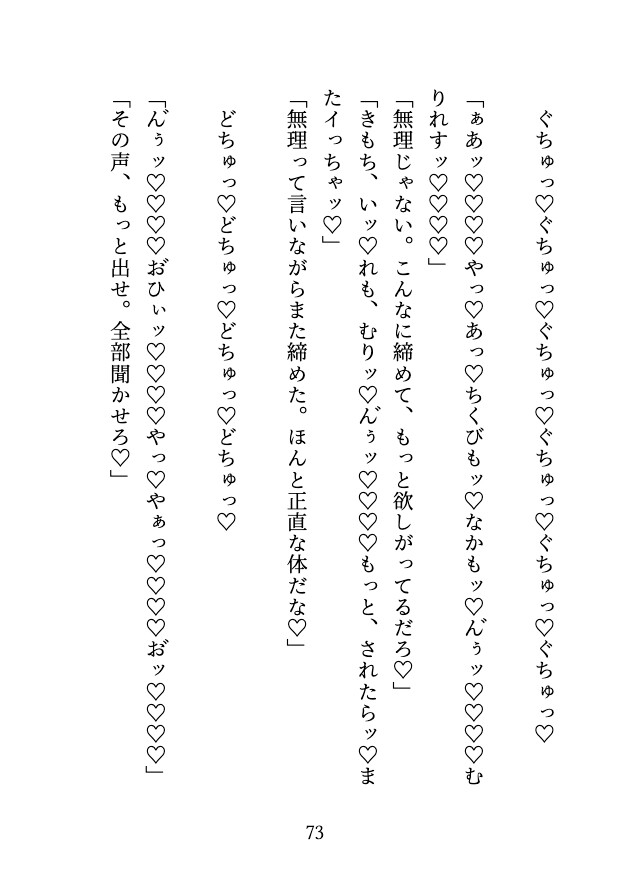 ぐちゅっ♡ぐちゅっ♡ぐちゅっ♡ぐちゅっ♡ぐちゅっ♡ぐちゅっ♡
「ぁあッ♡♡♡♡やっ♡あっ♡ちくびもッ♡なかもッ♡ん゙ぅッ♡♡♡♡む
りれすッ♡♡♡♡」
「無理じゃない。こんなに締めて、もっと欲しがってるだろ♡」
「きもち、いッ♡れも、むりッ♡ん゙ぅッ♡♡♡♡もっと、されたらッ♡ま
たイっちゃッ♡」
「無理って言いながらまた締めた。ほんと正直な体だな♡」
どちゅっ♡どちゅっ♡どちゅっ♡どちゅっ♡
「ん゙ぅッ♡♡♡♡お゙ひぃッ♡♡♡♡やっ♡やぁっ♡♡♡♡お゙ッ♡♡♡♡」
「その声、もっと出せ。全部聞かせろ♡」
73